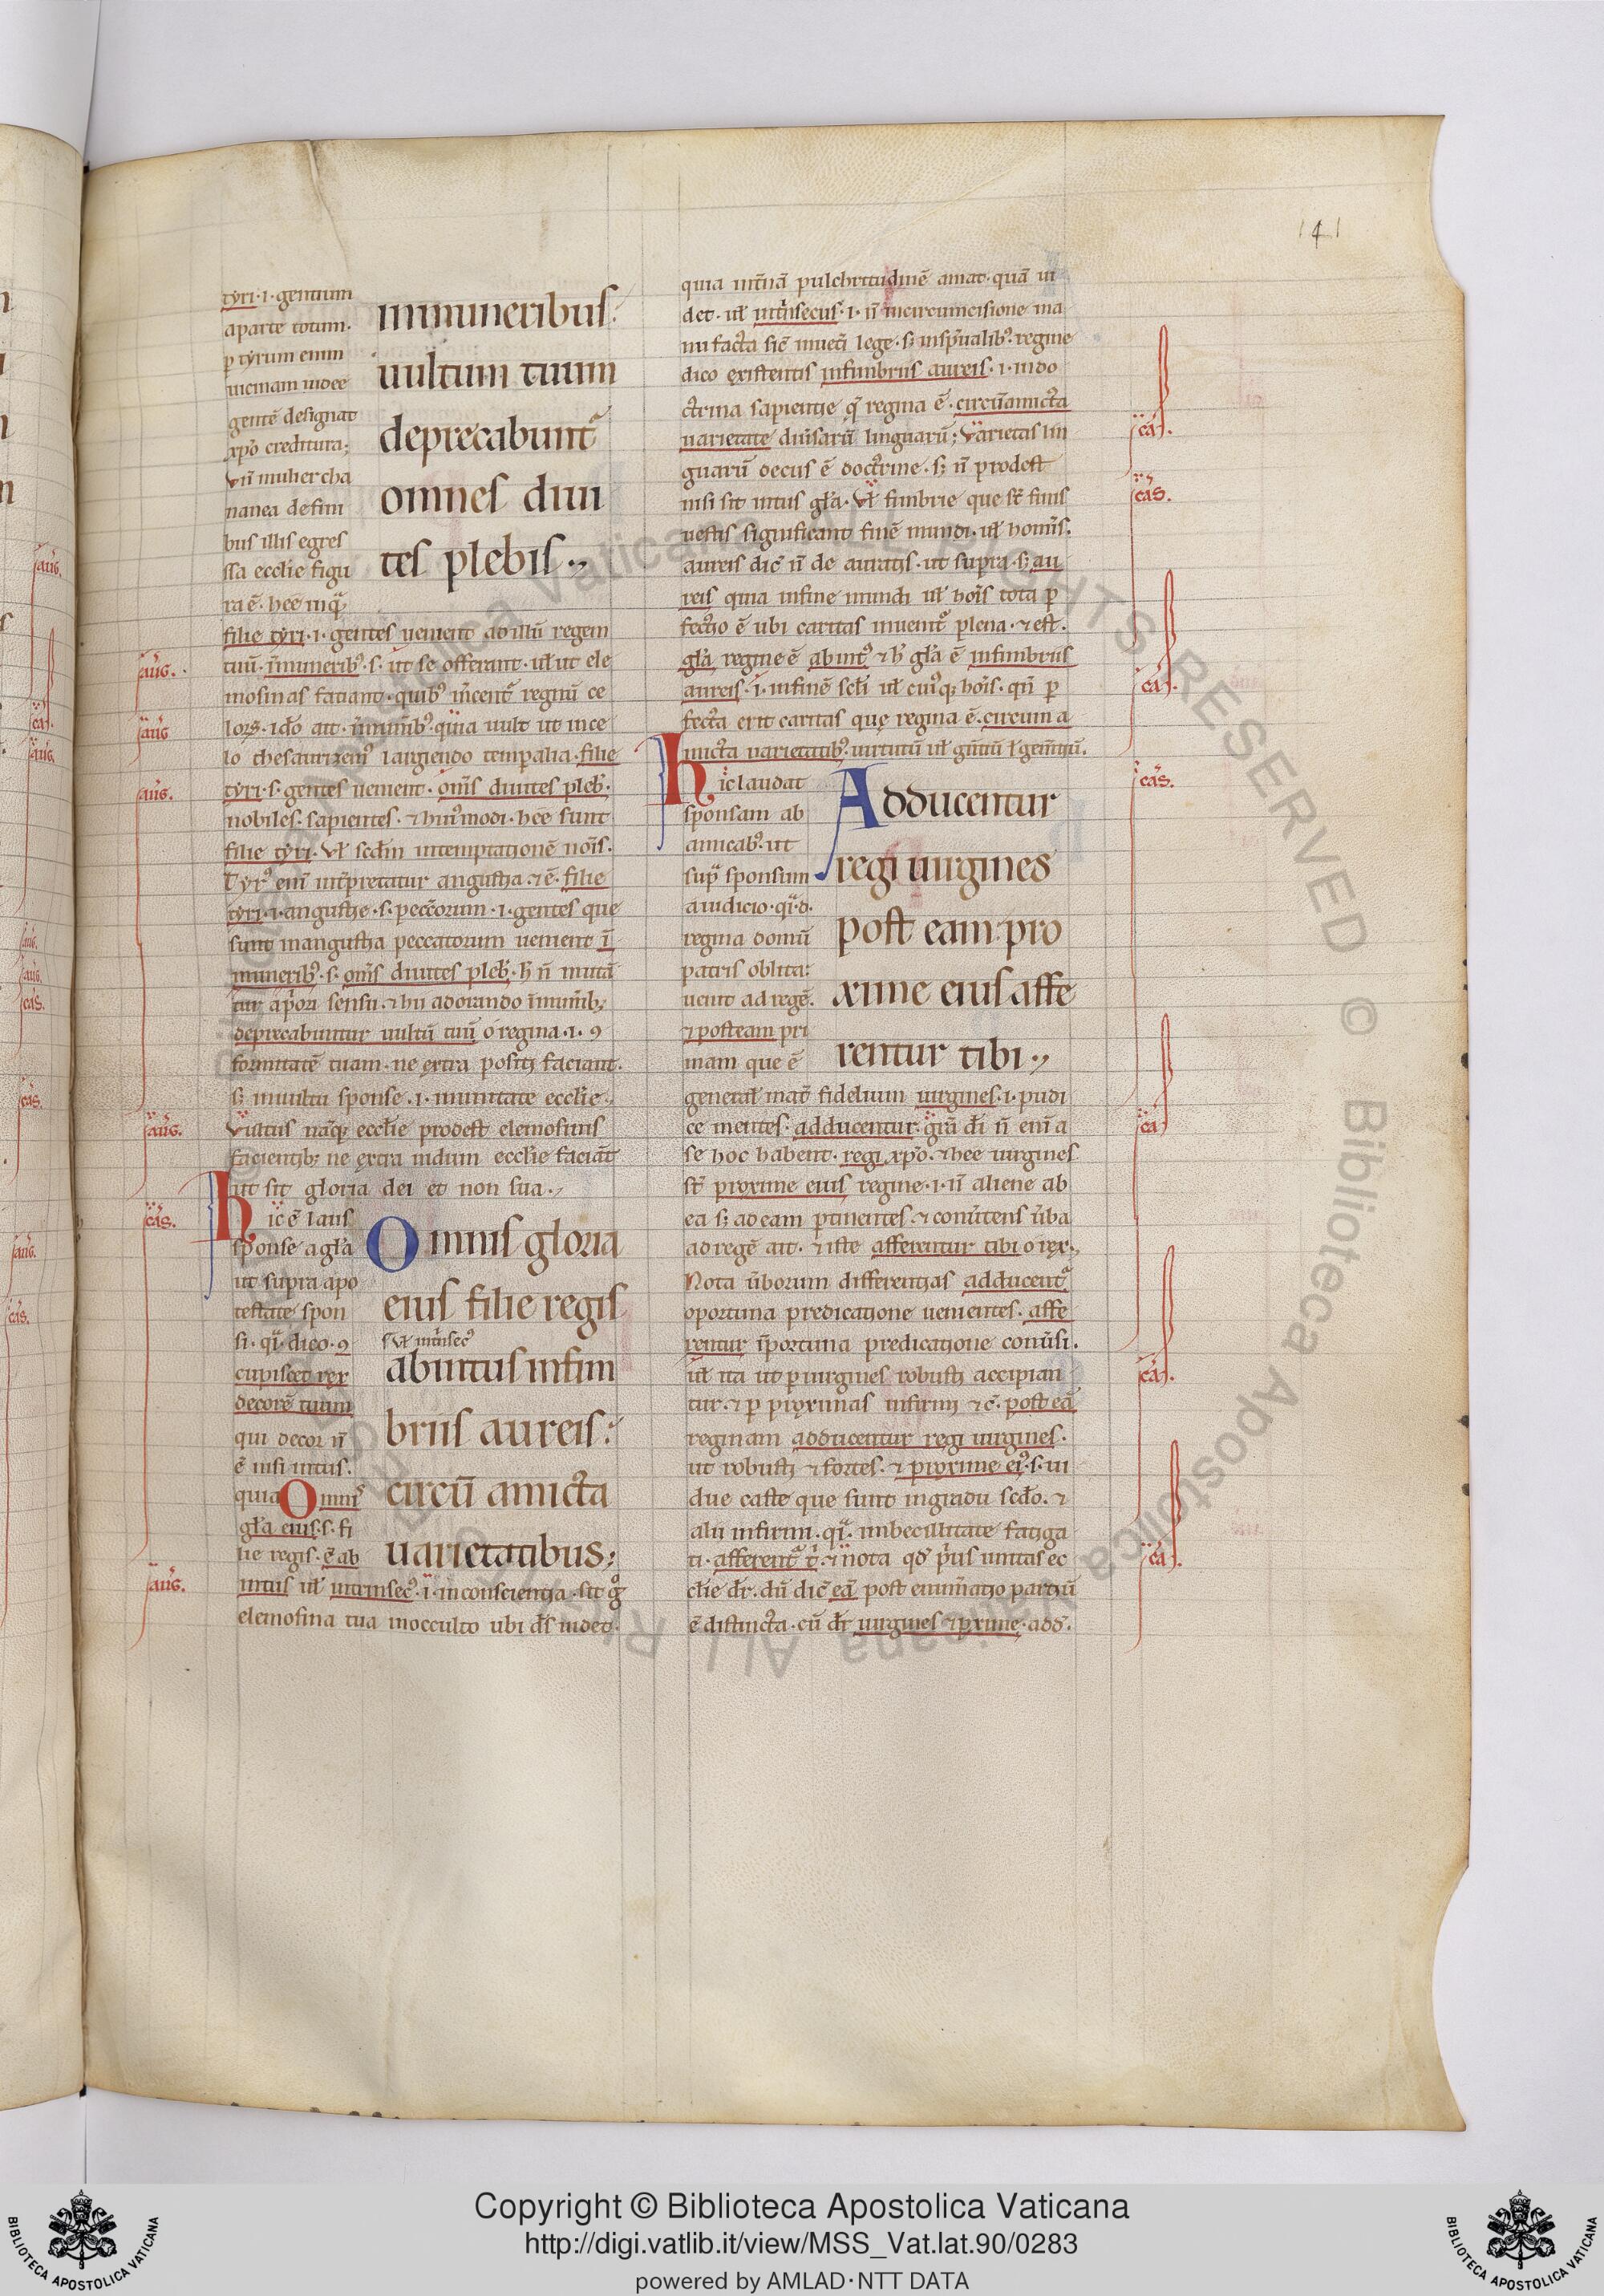 141
tyri .i. gentium
a parte totum.
p tyrum enim
uicinam iudee
gentē designat
xpō creditura;
Vn̄ mulier cha
nanea de fini
bus illis egres
sa eccl̄ie figu
ra ē. hec̄ inq̄
in muneribus:
uultum tuum
deprecabunt̄
omnes diui
tes plebis.,
filie tyri .i. gentes uenient ad illū regem
tuū. in muneribꝰ .s. ut se offerant. uł ut ele
mosinas faciant. quibꝰ m̄cent̄ regnū ce
loꝝ. ido ait. in munībꝰ. quia uult ut in ce
lo thesaurizemꝰ largiendo temp̄alia. filie
tyri .s. gentes uenient. om̄s diuites pleb̄.
nobiles. sapientes. ⁊ huiꝰmodi. hec̄ sunt
filie tyri. Vł scdm̄ int̄pretationē nōis.
Tyrꝰ eni int̄pretatur angustia. ⁊ ē. filie
tyri .i. angustie .s. peccōrum .i. gentes que
sunt in angustia peccatorum uenient ī
muneribꝰ .s. om̄s diuites pleb̄. h̄ n̄ muta
tur a p̄ori sensu. ⁊ hii adorando ī munībꝫ
deprecabuntur uultū tuū o regina .i. ꝯ
formitatē tuam. ne extra positi faciant.
sꝫ in uultu sponse .i. in unitate eccl̄ie.
Vultus nāqꝫ eccl̄ie prodest elemosinis
facientibꝫ ne extra nidum eccl̄ie faciāt
ut sit gloria dei et non sua.,
Hic ē laus
sponse a gł̄a
ut supra a po
testate spon
si. q̄i dico. ꝯ
cupiscet rex
decorē tuum
qui decor n̄
ē nisi intus.
quia Omnis
gł̄a eius .s. fi
lie regis. ē ab
Omnis gloria
eius filie regis
s. uł int̄nsecꝰ
ab intus in fim
briis aureis:
circū amicta
uarietatibus;
intus uł intrinsecꝰ .i. in conscientia. sit gͦ
elemosina tua in occulto ubi ds̄ uidet.
quia int̄nā pulchritudinē amat. quā ui
det. uł int̄nsecus .i. n̄ in circumcisione ma
nu facta sic̄ in uet̄i lege. sꝫ in sp̄ualibꝰ. regine
dico existentis in fimbriis aureis .i. in do
ctrina sapientie q̄ regina ē. circū amicta
uarietate diu̅sarū linguarū; Varietas lin
guarū decus ē doctrine. sꝫ n̄ prodest
nisi sit intus gł̄a. Vł fimbrie que st̄ finis
uestis significant finē mundi. uł hom̄is.
aureis dic̄ n̄ de auratis. ut supra. sꝫ au
reis quia in fine mundi uł hōis tota p
fectio ē ubi caritas inuenit̄ plena. ⁊ est.
gł̄a regine ē ab intꝰ ⁊ h̄ gł̄a ē in fimbriis
aureis .i. in finē scl̄i uł cuiꝰqꝫ hōis. qn̄ p
fecta erit caritas que regina ē. circum a
micta uarietatibꝰ. uirtutū uł gn̄tiū ł gem̄tiū.
Hic laudat
sponsam ab
amicabꝰ. ut
sup̄ sponsum
a iudicio. q̄i. d.
regina domū
patris oblita:
uenit ad regē.
⁊ post eam pri
mam que ē
Adducentur
regi uirgines
post eam pro
xime eius affe
rentur tibi.,
general̄ mat̄ fidelium uirgines .i. pudi
ce mentes. adducentur. gr̄a di n̄ enī a
se hoc habent. regi xpō. ⁊ hec̄ uirgines
st̄ proxime eius regine .i. n̄ aliene ab
ea sꝫ ad eam p̄tinentes. ⁊ conu̅tens u̅ba
ad regē ait. ⁊ iste afferentur tibi o rex.,
Nota u̅borum differentias adducent̄
oportuna predicatione uenientes. affe
rentur īportuna predicatione conu̅si.
uł ita ut p uirgines robusti accipian
tur. ⁊ p proximas infirmi ⁊ c̄. post eā
reginam adducentur regi uirgines.
ut robusti ⁊ fortes. ⁊ proxime eiꝰ .s. ui
due caste que sunt in gradu scd̄o. ⁊
alii infirmi. q̄i imbecillitate fatiga
ti. afferent̄ t̄. ⁊ nota qd̄ p̄us unitas ec
cl̄ie dr̄. dū dic̄ eā post enum̄atio partiū
ē distincta. cū dr̄ uirgines ⁊ pxime. add̄.
aug.
aug
aug.
aug.
cas.
aug.
cas.
cas.
cas.
cas.
cas
cas.
cas.
Copyright © Biblioteca Apostolica Vaticana
http://digi.vatlib.it/view/MSS_Vat.lat.90/0283
powered by AMLAD·NTT DATA
BIBLIOTECA APOSTOLICA VATICANA
BIBLIOTECA APOSTOLICA VATICANA